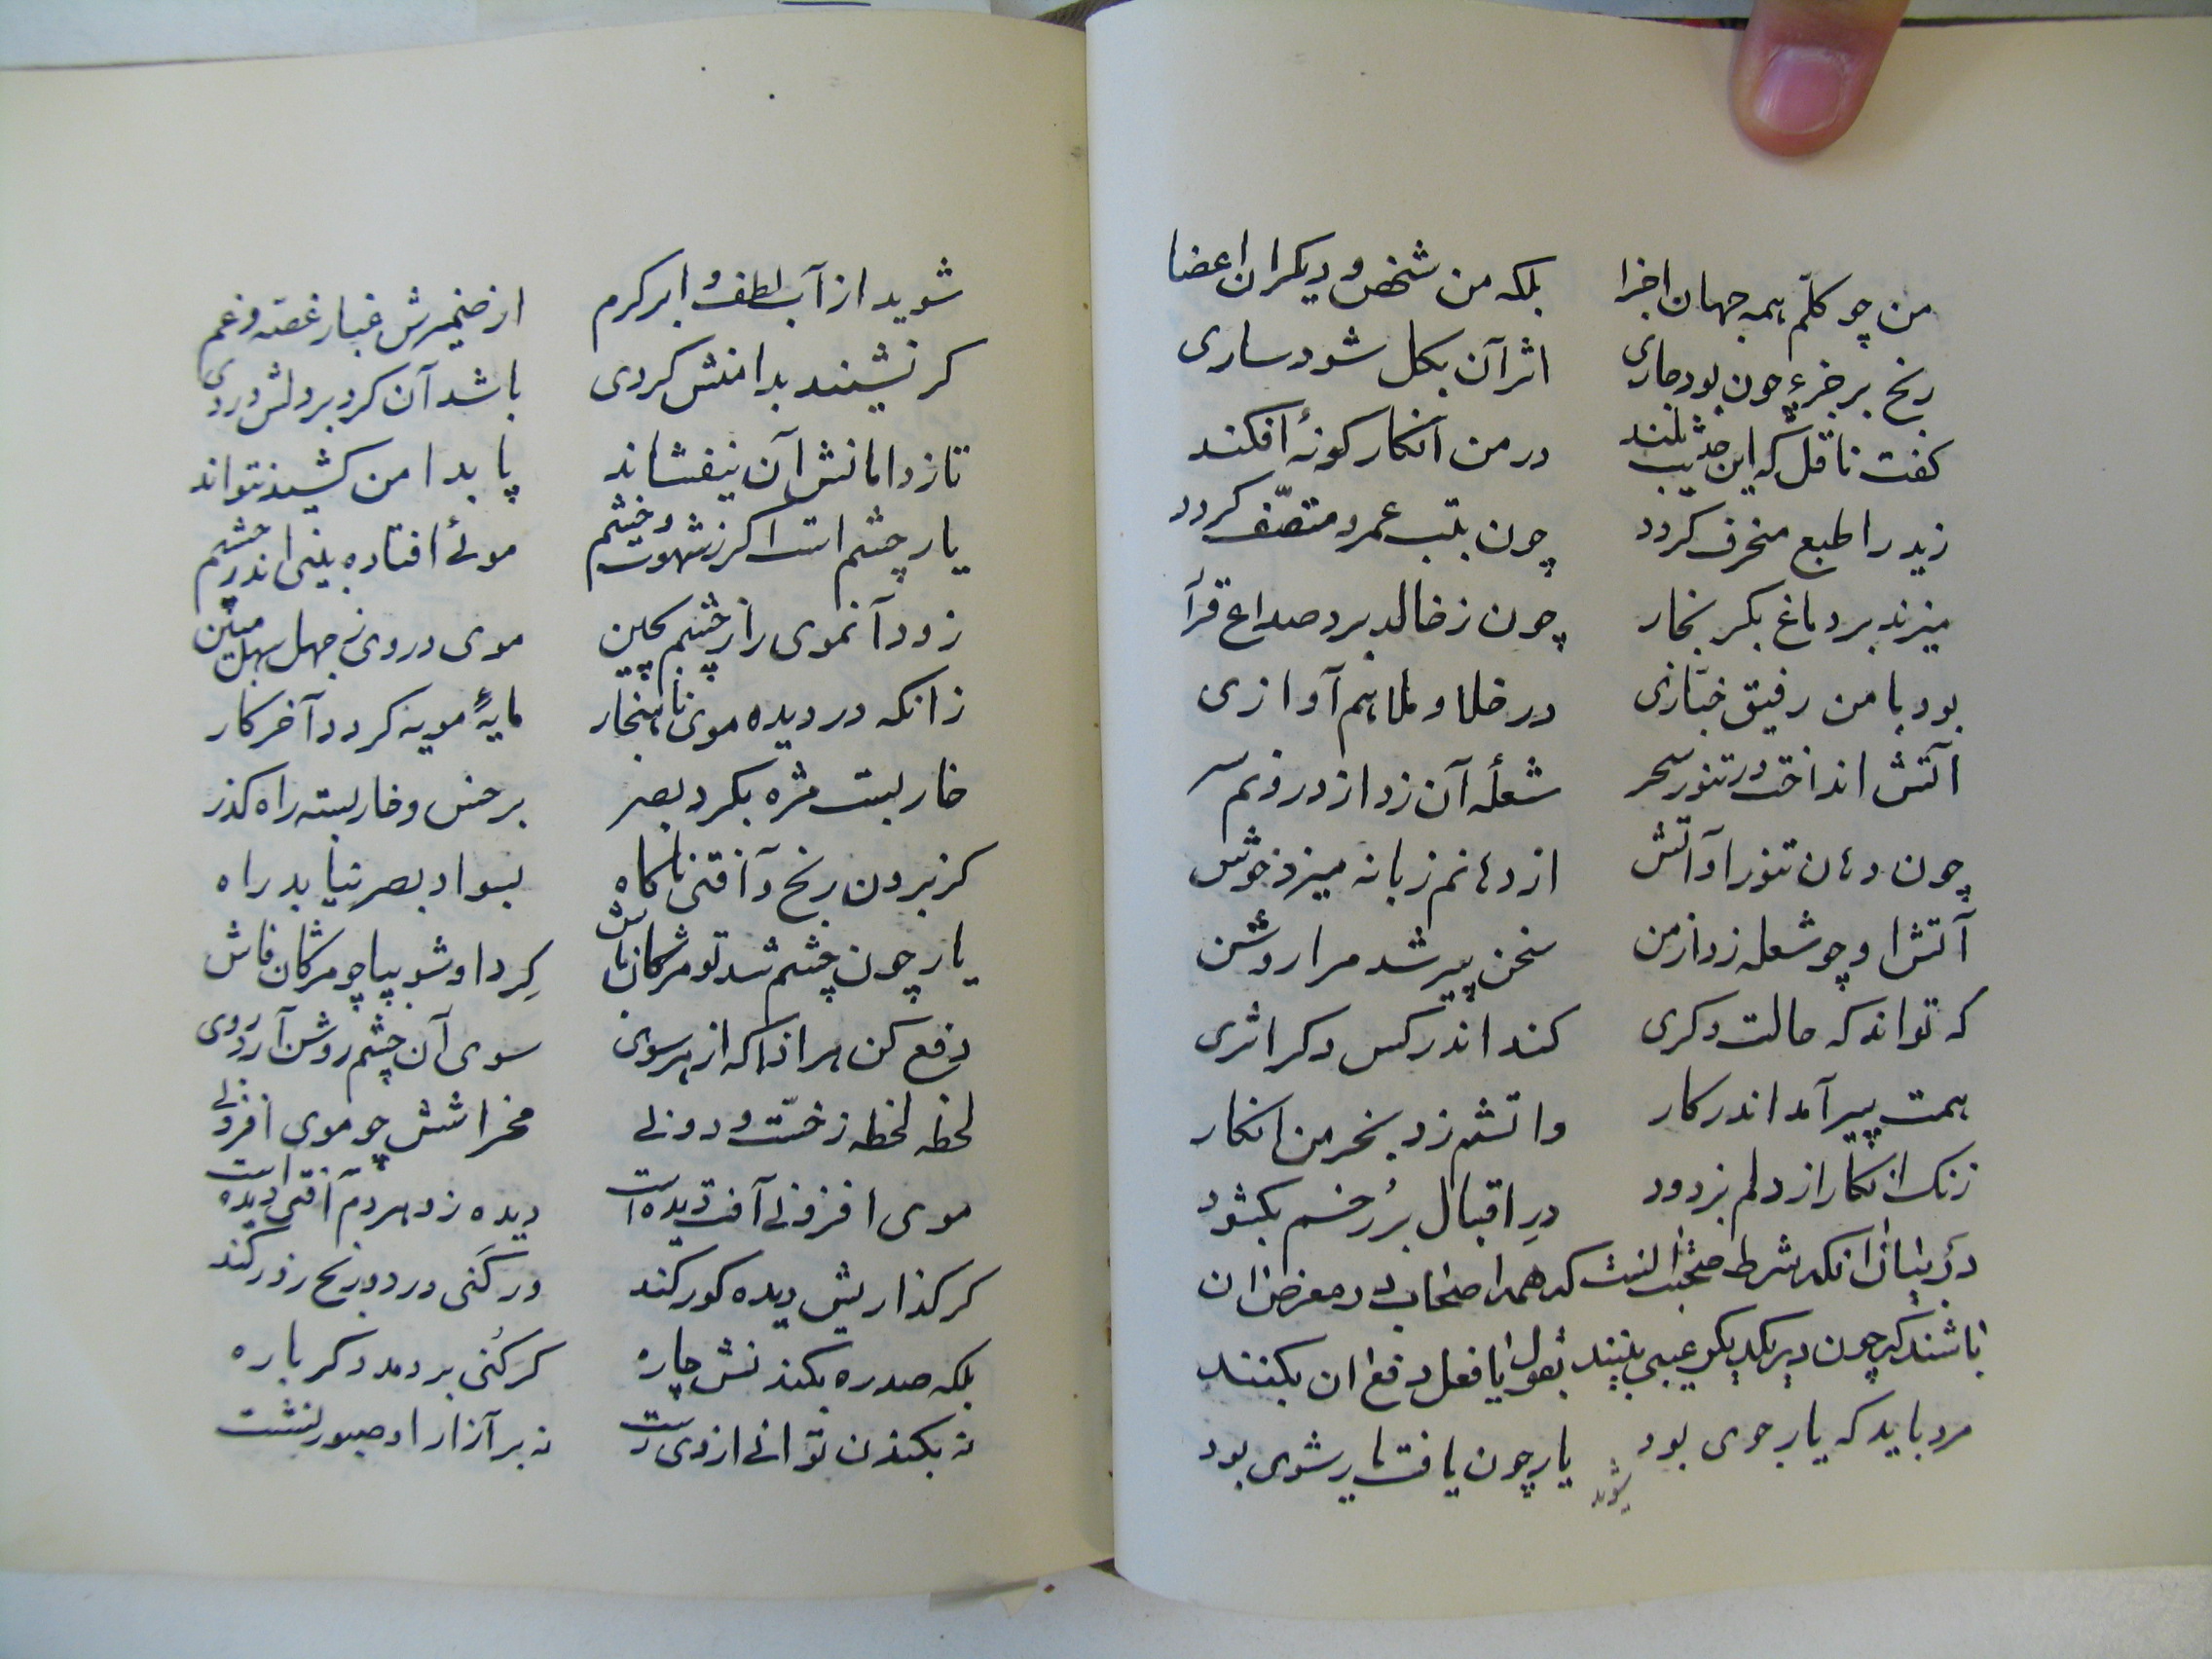 من چو کلّم همه جهان اجزا بلکه من شخص و دیکران اعضا
رنج بر جزءِ چون بود جاری اثر آن بکل شود ساری
کفت ناقل که این حدیث بلند در من انکار کونهٔ افکند
زید را طبع منحرف کردد چون بتب عمرو متصّف کردد
میزند بر دماغ بکر بخار چون ز خالد برد صداع قرار
بود با من رفیق خبّازی در خلا و ملا هم آوازی
آتش انداخت در تنور سحر شعلهٔ آن زد از درونم سر
چون دهان تنور او آتش از دهانم زبانه میزد خوش
آتش او چو شعله زد از من سخن پیر شد مرا روشن
که تواند که حالت دکری کند اندر کس دکر اثری
همت پیر آمد اندر کار واتشم زد بخرمن انکار
زنک انکار از دلم بزدود درِ اقبال بر رخم بکشود
در بیان آنکه شرط صحبت انست که همه اصحاب در معرض ان
باشند که چون در یکدیکر عیبی بینند بقول یا فعل دفع ان بکنند
مرد باید که یار جوی بود یار چون یافت یار شوی بود
شوید
شوید از آب لطف و ابر کرم از ضمیرش غبار غصّه و غم
کر نشیند بدامنش کردی باشد آن کرد بر دلش دردی
تا ز دامانش آن نیفشاند پا بدامن کشید نتواند
یار چشم است اکر ز شهوت و خشم موئے افتاده بینی اندر چشم
زود آنموی را ز چشم بچین موی در وی ز جهل سهل مبین
زانکه در دیده موی ناهنجار مایهٔ مویه کردد آخر کار
خار بست مژه بکرد بصر بر خس و خار بسته راه کذر
کز برون رنج و آفتی ناکاه بسواد بصر نیابد راه
یار چون چشم شد تو مژکان باش کرد او شو بپا چو مژکان فاش
دفع کن هر اذا که از هر سوی سوی آن چشم روشن آرد روی
لحظه لحظه ز خسّت و دونی مخراشش چو موی افزونی
موی افزونی آفت دیده است دیده زو هر دم آفتی دیده است
کر کذاریش دیده کور کند ور کَنی درد و رنج زور کند
بلکه صد ره بکندنش چاره کر کُنی بردمد دکر باره
نه بکندن توانی از وی رست نه بر آزار او صبور نشست